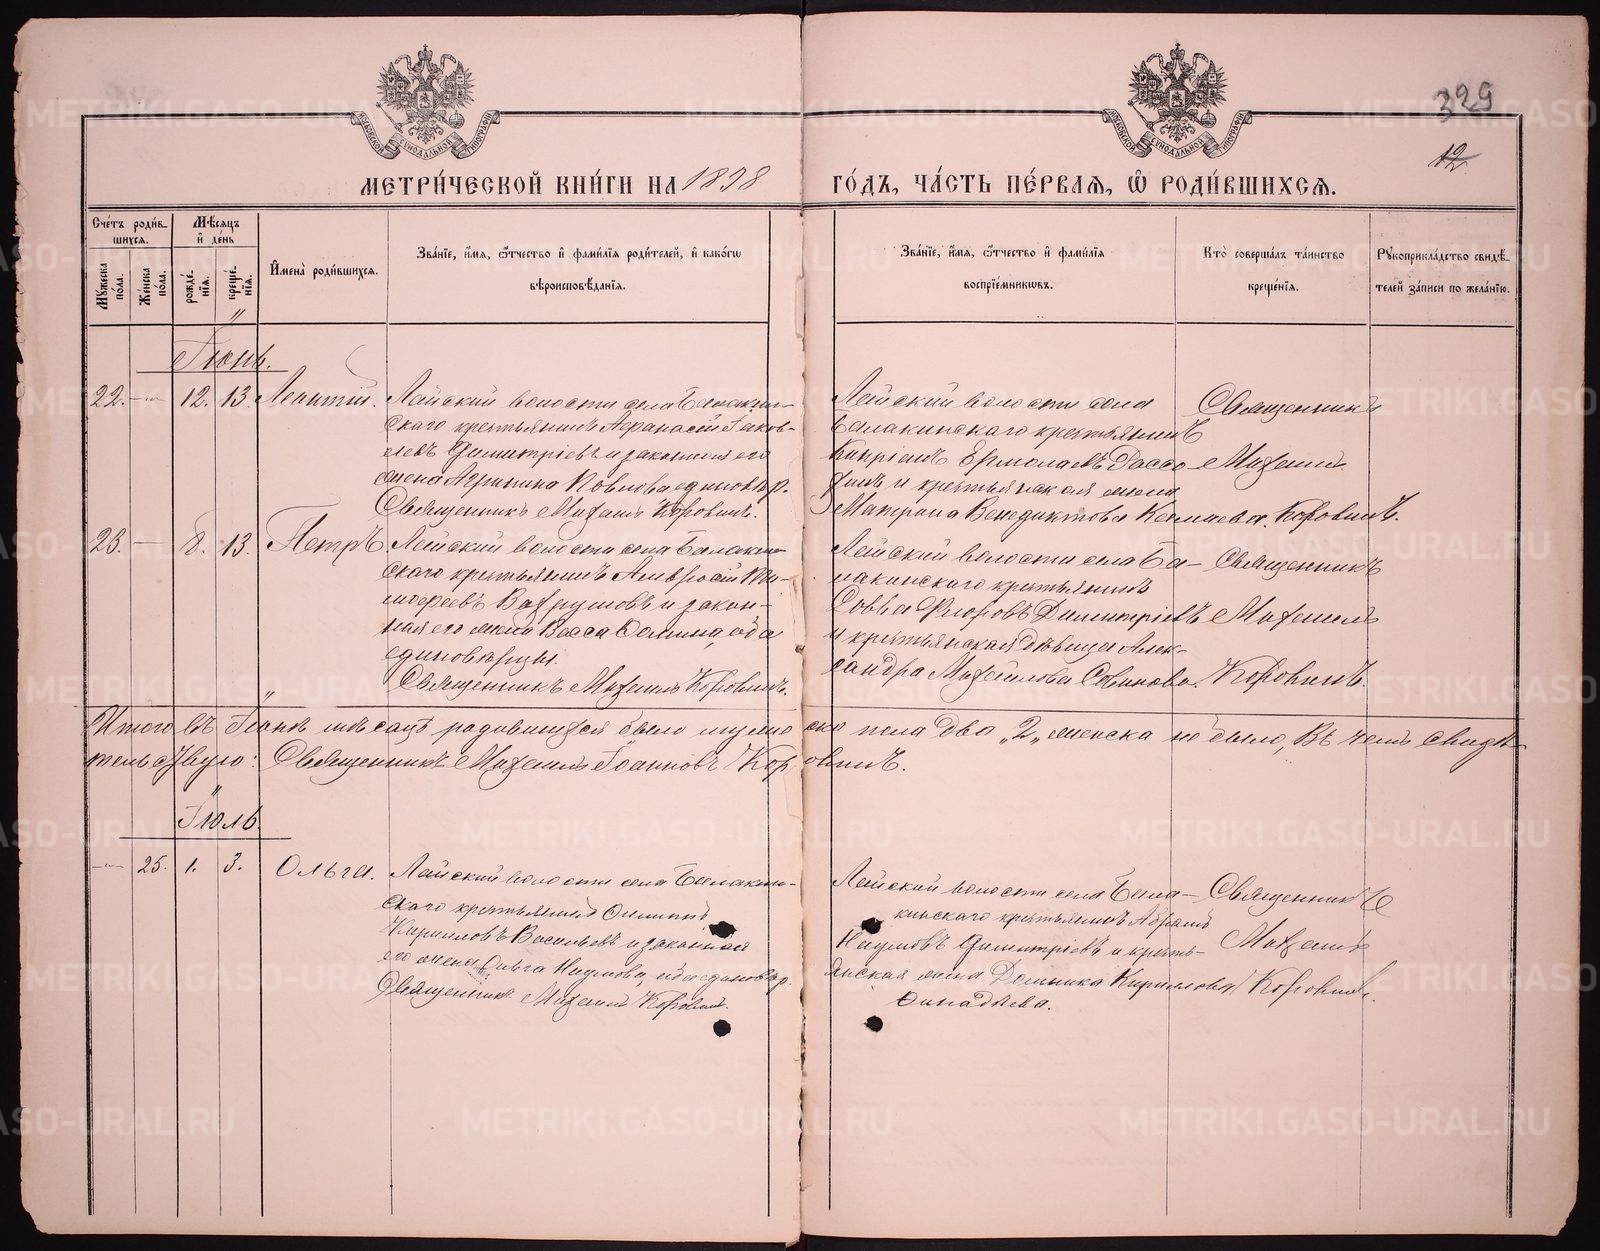 329
12
МОСКОВСКОЙ СѴНОДАЛЬНОЙ ТИПОГРАФІИ
МОСКОВСКОЙ СѴНОДАЛЬНОЙ ТИПОГРАФІИ
МЕТРИ́ЧЕСКОЙ КНИ́ГИ НА 1898 ГО́ДЪ, ЧА́СТЬ ПЕ́РВАѦ, Ѽ РОДИ́ВШИХСѦ.
Сче́тъ роди́в-
шихсѧ.
Мѣ́сѧцъ
и҆ де́нь
Му́жеска
по́ла.
Же́нска
по́ла.
рожде́-
нїѧ.
креще́-
нїѧ.
И҆мена̀ роди́вшихсѧ.
Зва́нїе, и҆́мѧ, ѻ҆́тчество и҆ фами́лїѧ роди́телей, и҆ како́гѡ
вѣроисповѣ́данїѧ.
Зва́нїе, и҆́мѧ, ѻ҆́тчество и҆ фами́лїѧ
воспрїе́мникѡвъ.
Кто̀ соверша́лъ та́инство
креще́нїѧ.
Рꙋкоприкла́дство свидѣ́-
телей за́писи по жела́нїю.
Іюнь.
22. — 12. 13. Леонтій. Лайской волости села Балакин-
скаго крестьянинъ Аѳанасій Іаков-
левъ Димитріевъ и законная его
жена Агрипина Павлова единовѣр.
Священникъ Михаилъ Коровинъ.
Лайской волости села
Балакинскаго крестьянинъ
Ермолаевъ
и крестьянская жена
Матрона Венедиктова
Священникъ
Михаилъ
Коровинъ.
23. — 8. 13. Петръ. Лайской волости села Балакин-
скаго крестьянинъ Амвросій Ти-
моѳеевъ Вахрушовъ и закон-
ная его жена Васса оба
единовѣрцы.
Священникъ Михаилъ Коровинъ.
Лайской волости села Ба-
лакинскаго крестьянинъ
Савва Флоровъ Димитріевъ
и крестьянская дѣвица Алек-
сандра Михаилова
Священникъ
Михаилъ
Коровинъ.
Итого въ Іюнѣ мѣсяцѣ родившихся было мужеско пола два „2„ женска не было, Въ чемъ свидѣ-
тельствую: Священникъ Михаилъ Іоанновъ Коровинъ.
Іюль.
— 25. 1. 3. Ольга. Лайской волости села Балакин-
скаго крестьянинъ
Кирилловъ Васильевъ и законная
его жена Ольга Наумова, оба единовѣр.
Священникъ Михаилъ Коровинъ.
Лайской волости села Бала-
кинскаго крестьянинъ Абрамъ
Наумовъ Димитріевъ и кресть-
янская жена Домника Кириллова
Священникъ
Михаилъ
Коровинъ.
METRIKI.GASO-URAL.RU